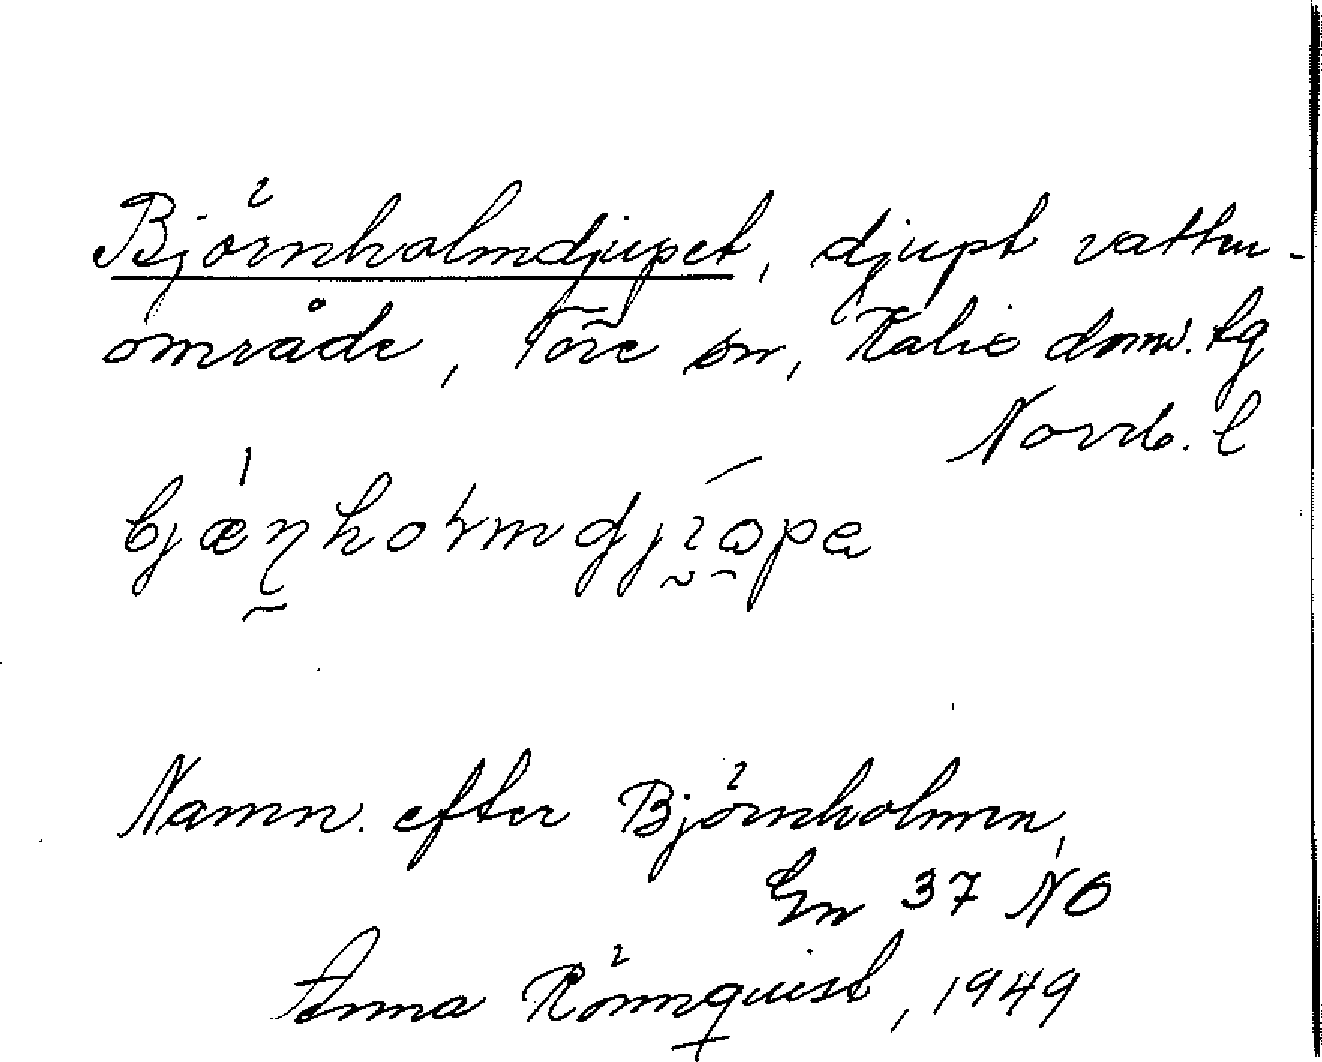 Björnholmdjupet, djupt vatten-
område, Töre sn, Kalix doms. tg
Norrb. l
Namn. efter Björnholmen,
Gn 37 NO
Anna Rönnquist, 1949